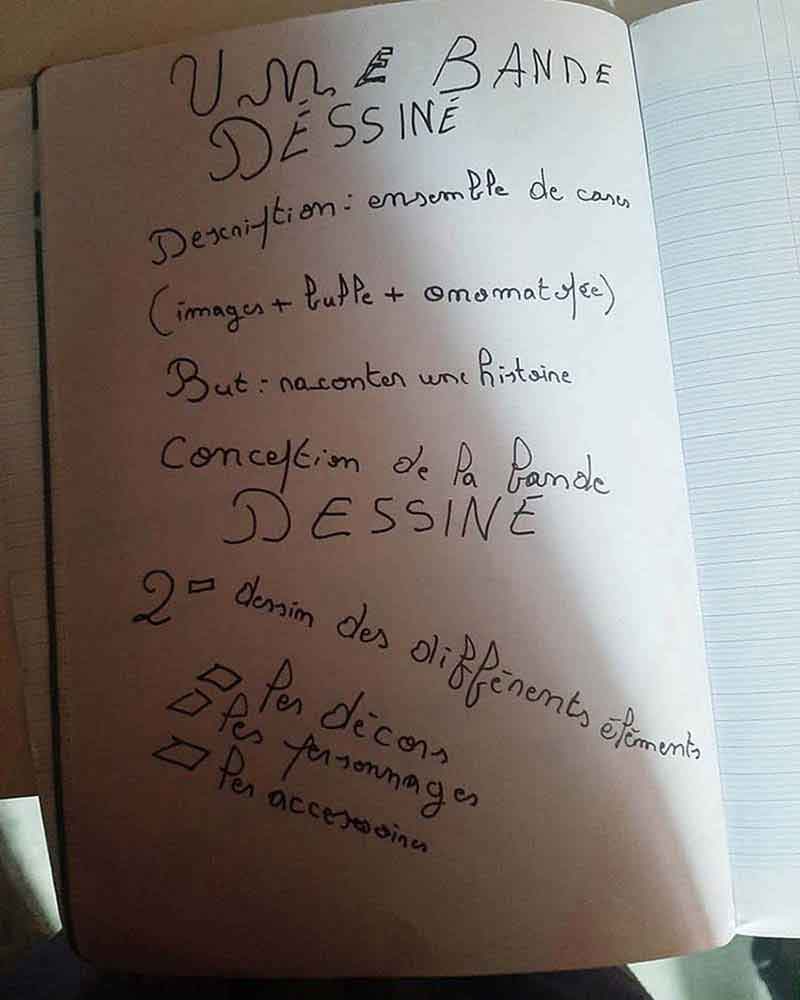 UNE BANDE
DÉSSINÉ
Description : ensemble de cases
(images + bulle + onomatopée)
But : raconter une histoire
Conception de la bande
DESSINÉ
2 = dessin des différents éléments
les décors
les personnages
les accessoires